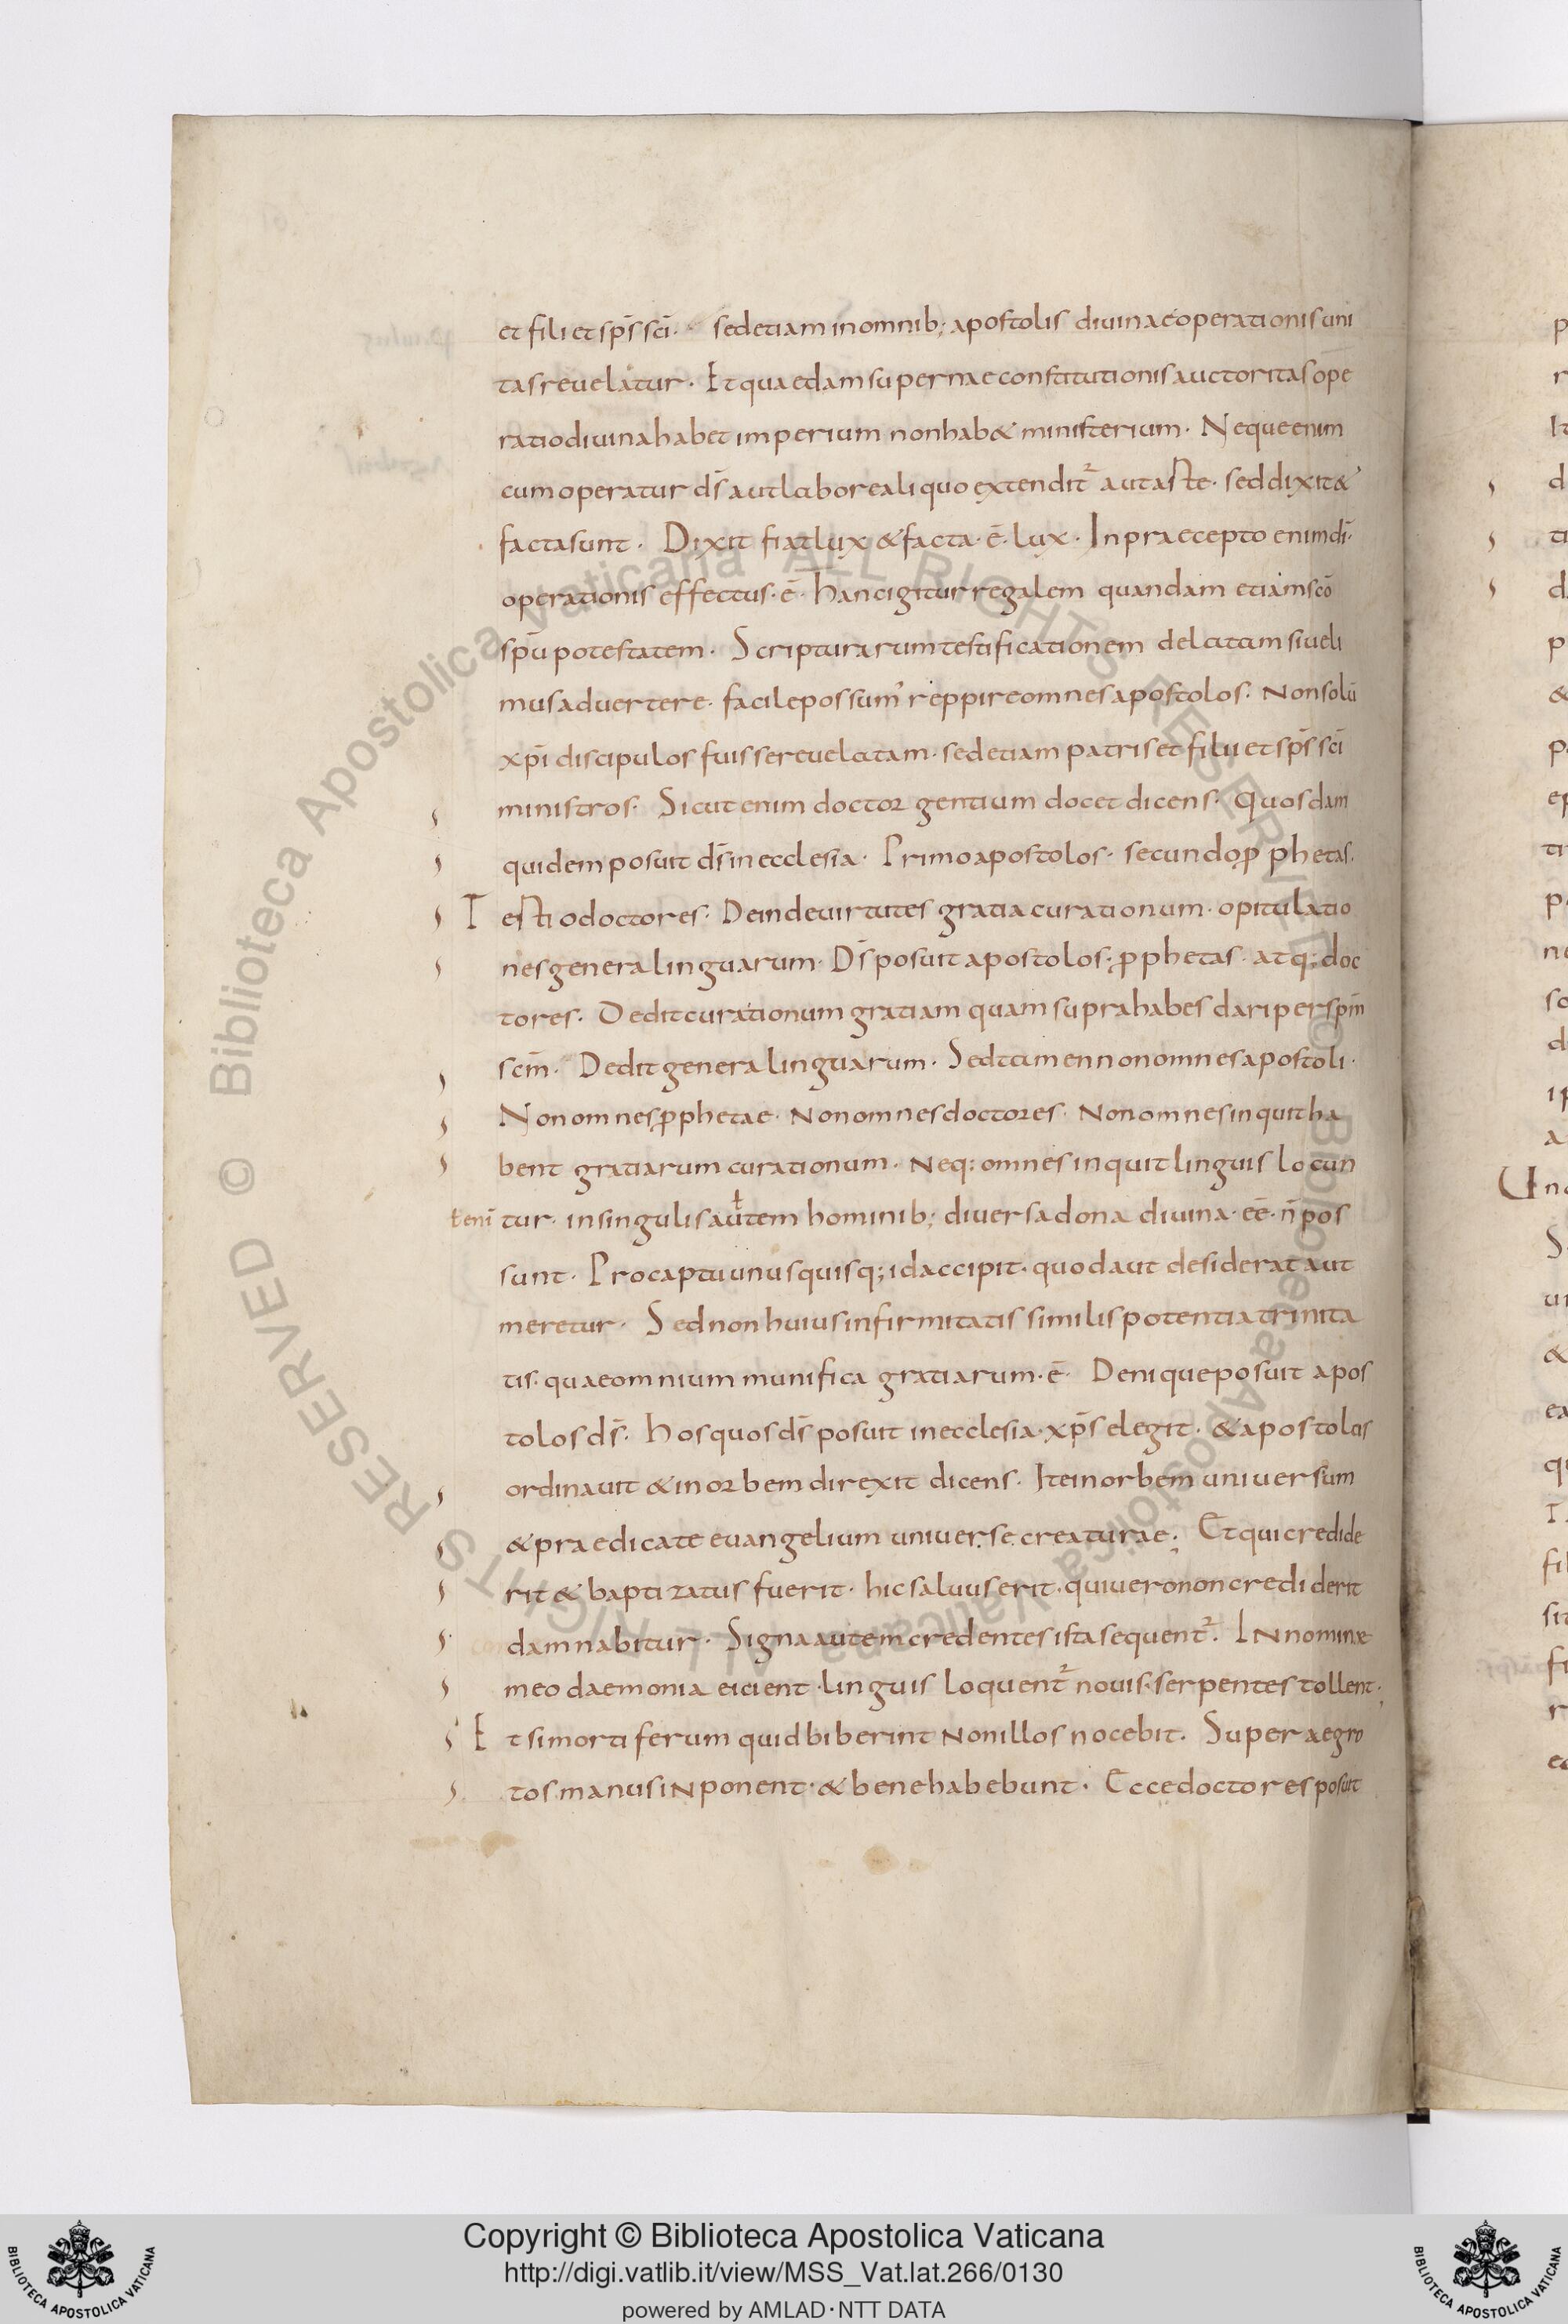 et fili et sp̄s sc̄i · sed etiam in omnib; apostolis divinae operationis uni
tas revelatur · Et quaedam supernae constitutionis auctoritas ope
ratio divina habet imperium non hab& ministerium · Neque enim
cum operatur d̄s aut labore aliquo extendit᷑ aut arte · sed dixit &
facta sunt · Dixit fiat lux & facta · ē · lux · In praecepto enim dī ·
operationis effectus · ē · hanc igitur regalem quandam etiam sc̄o
sp̄u potestatem · Scripturarum testificationem delatam si veli
mus advertere · facile possum' reppire omnes apostolos · Non solū
xp̄i discipulos fuisse revelatam · sed etiam patris et filii et sp̄s sc̄i
ministros · Sicut enim doctor gentium docet dicens · Quosdam
quidem posuit d̄s in ecclesia · Primo apostolos · secundo ꝓphetas ·
Tertio doctores · Deinde virtutes gratia curationum · opitulatio
nes genera linguarum · D̄s posuit apostolos · ꝓphetas · atq; doc
tores · Dedit curationum gratiam quam supra habes dari per sp̄m
sc̄m · Dedit genera linguarum · Sed tamen non omnes apostoli ·
Non omnes ꝓphetae · Non omnes doctores · Non omnes inquit ha
bent gratiarum curationum · Neq; omnes inquit linguis locun
tur · in singulis autem hominib; diversa dona divina · eē · n̄ pos
sunt · Pro captu unusquisq; id accipit · quod aut desiderat aut
meretur · Sed non huius infirmitatis similis potentia trinita
tis · quae omnium munifica gratiarum · ē · Denique posuit apos
tolos d̄s · Hos quos d̄s posuit in ecclesia · xp̄s elegit · & apostolos
ordinavit & in orbem direxit dicens · Ite in orbem universum
& praedicate evangelium universe creaturae · Et qui credide
rit & baptizatus fuerit · hic salvus erit · qui vero non crediderit
damnabitur · Signa autem credentes ista sequent᷑ · In nominae
meo daemonia eicient · linguis loquent᷑ novis · serpentes tollent ·
Et si mortiferum quid biberint Non illos nocebit · Super aegro
tos manus inponent · & bene habebunt · Ecce doctores posuit
Biblioteca Apostolica Vaticana ALL RIGHTS RESERVED ©
Copyright © Biblioteca Apostolica Vaticana
http://digi.vatlib.it/view/MSS_Vat.lat.266/0130
powered by AMLAD·NTT DATA
BIBLIOTECA APOSTOLICA VATICANA
BIBLIOTECA APOSTOLICA VATICANA